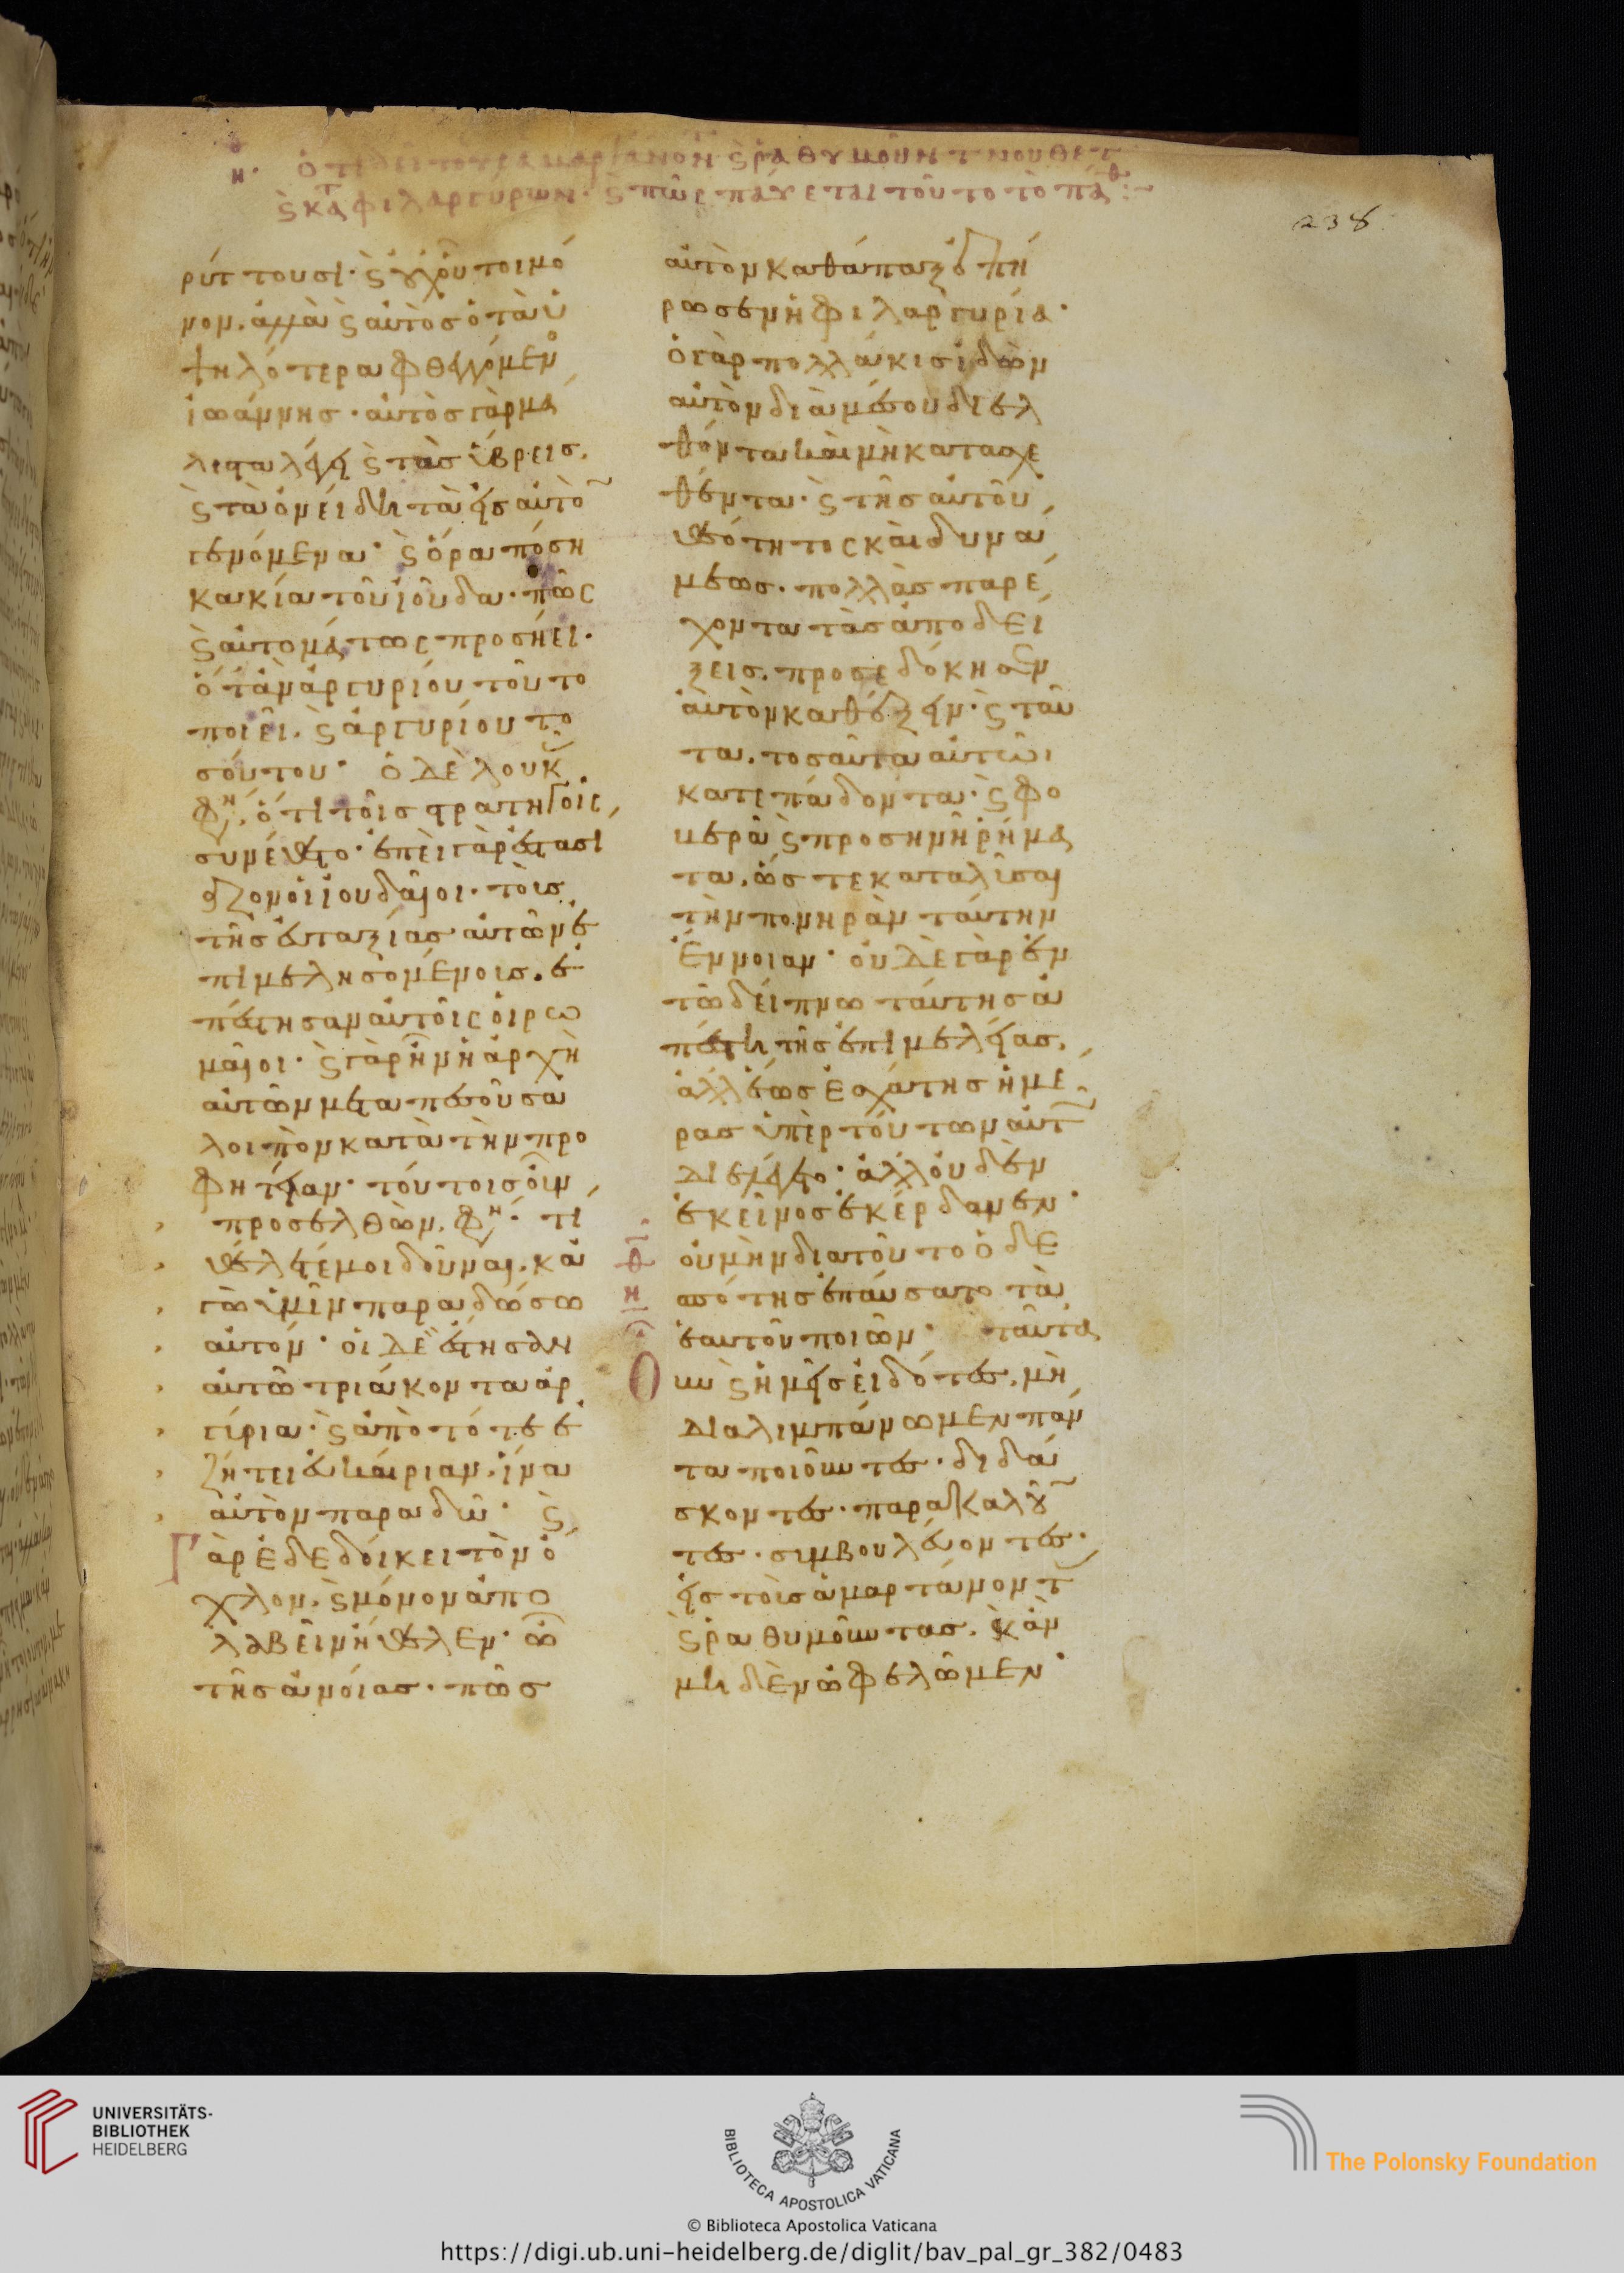 ὅτι δεῖ τοὺς ἁμαρτάνον ϗ ῥαθυμοῦν τ νουθετ
ϗ κατ φιλαργύρων· ϗ πῶς παύεται τοῦτο τὸ πάθ :~
238
ρύττουσι· ϗ οὐχ οὗτοι μό
νον, ἀλλὰ ϗ αὐτὸς ὁ τὰ ὑ
ψηλότερα φθεγγόμεν
ἰωάννης· αὐτὸς γὰρ μα
λιστα λέγει ϗ τὰς ὕβρεις,
ϗ τὰ ὀνείδη τὰ εἰς αὐτὸ
γενόμενα· ϗ ὅρα πόση
κακία τοῦ ἰούδα· πῶς
ϗ αὐτομάτως προσήει·
ὅταν ἀργυρίου τοῦτο
ποιεῖ· ϗ ἀργυρίου το
σούτου· ὁ δὲ λουκ
φη, ὅτι τοῖς στρατηγοῖς
συνέθετο· ἐπεὶ γὰρ ἐστασί
αζον οἱ ἰουδαῖοι· τοῖς
τῆς εὐταξίας αὐτῶν ἐ
πιμελησομένοις· ἐ
πέστησαν αὐτοῖς οἱ ρω
μαῖοι· ϗ γὰρ ἦν ἡ ἀρχὴ
αὐτῶν μεταπεσοῦσα
λοιπὸν κατὰ τὴν προ
φητείαν· τούτοις οὖν
προσελθὼν, φη· τί
θέλετέ μοι δοῦναι, κα
γὼ ὑμῖν παραδώσω
αὐτόν· οἱ δὲ ἔστησαν
αὐτῶ τριάκοντα ἀρ
γύρια· ϗ ἀπὸ τότε ἐ
ζήτει εὐκαιρίαν, ἵνα
αὐτὸν παραδῶ· ϗ
γὰρ ἐδεδοίκει τὸν ὄ
χλον, ϗ μόνον ἀπο
λαβεῖν ἤθελεν· ὢ
τῆς ἀνοίας· πῶς
αὐτὸν καθάπαξ ἐπή
ρωσεν ἡ φιλαργυρία·
ὁ γὰρ πολλάκις ἰδὼν
αὐτὸν διὰ μέσου διελ
θόντα καὶ μὴ κατασχε
θέντα· ϗ τῆς αὐτοῦ
θεότητος καὶ δυνά
μεως· πολλὰς παρέ
χοντα τὰς ἀποδεί
ξεις, προσεδόκησεν
αὐτὸν καθέξειν· ϗ ταῦ
τα, τοσαῦτα αὐτῶι
κατεπάδοντα· ϗ φο
βερὰ ϗ προσηνῆ ῥήμα
τα, ὥστε καταλῦσαι
τὴν πονηρὰν ταύτην
ἔννοιαν· οὐδὲ γὰρ ἐν
τῶ δείπνω ταύτης ἀ
πέστη τῆς ἐπιμελείας,
ἀλλ' ἕως ἐσχάτης ἡμέ
ρας ὑπὲρ τούτων αὐτ
διελέγετο· ἀλλ' οὐδὲν
ἐκεῖνος ἐκέρδανεν·
οὐ μὴν διὰ τοῦτο ὁ δε
σπότης ἐπαύσατο τὰ
ἑαυτοῦ ποιῶν· ταῦτα
Οὖν ϗ ἡμεῖς εἰδότες, μὴ
διαλιμπάνωμεν πάν
τα ποιοῦντες· διδά
σκοντες· παρακαλοῦν
τες· συμβουλεύοντες·
εἰς τοὺς ἁμαρτάνοντ
ϗ ραθυμοῦντας· κἂν
μηδὲν ὠφελῶμεν·
UNIVERSITÄTS-
BIBLIOTHEK
HEIDELBERG
BIBLIOTECA APOSTOLICA VATICANA
The Polonsky Foundation
© Biblioteca Apostolica Vaticana
https://digi.ub.uni-heidelberg.de/diglit/bav_pal_gr_382/0483